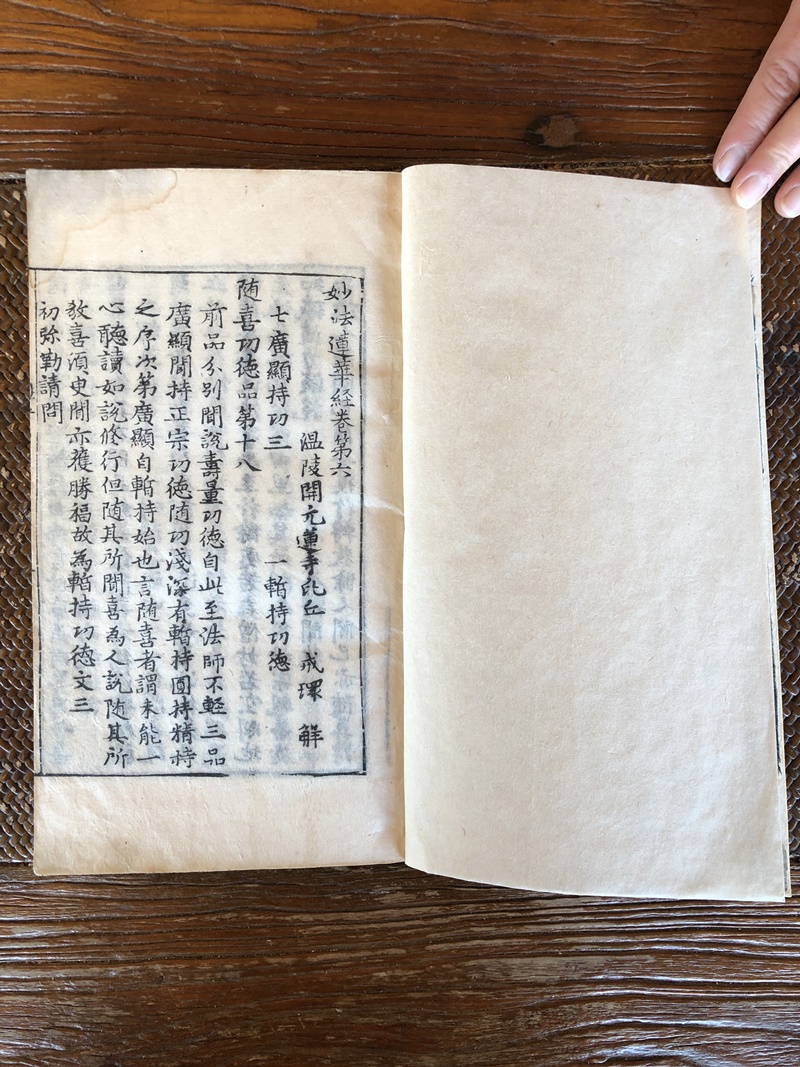 妙法蓮華経卷第六
温陵開元蓮寺比丘 戒環 解
七廣顯持功三 一暫持功德
随喜功德品第十八
前品分別聞說壽量功德自此至法師不輕三品
廣顯聞持正宗功德随功淺深有暫持圓持精持
之序次第廣顯自暫持始也言随喜者謂未能一
心聽讀如說修行但随其所聞喜為人說随其所
教喜須臾聞亦獲勝福故為暫持功德文三
初弥勒請問